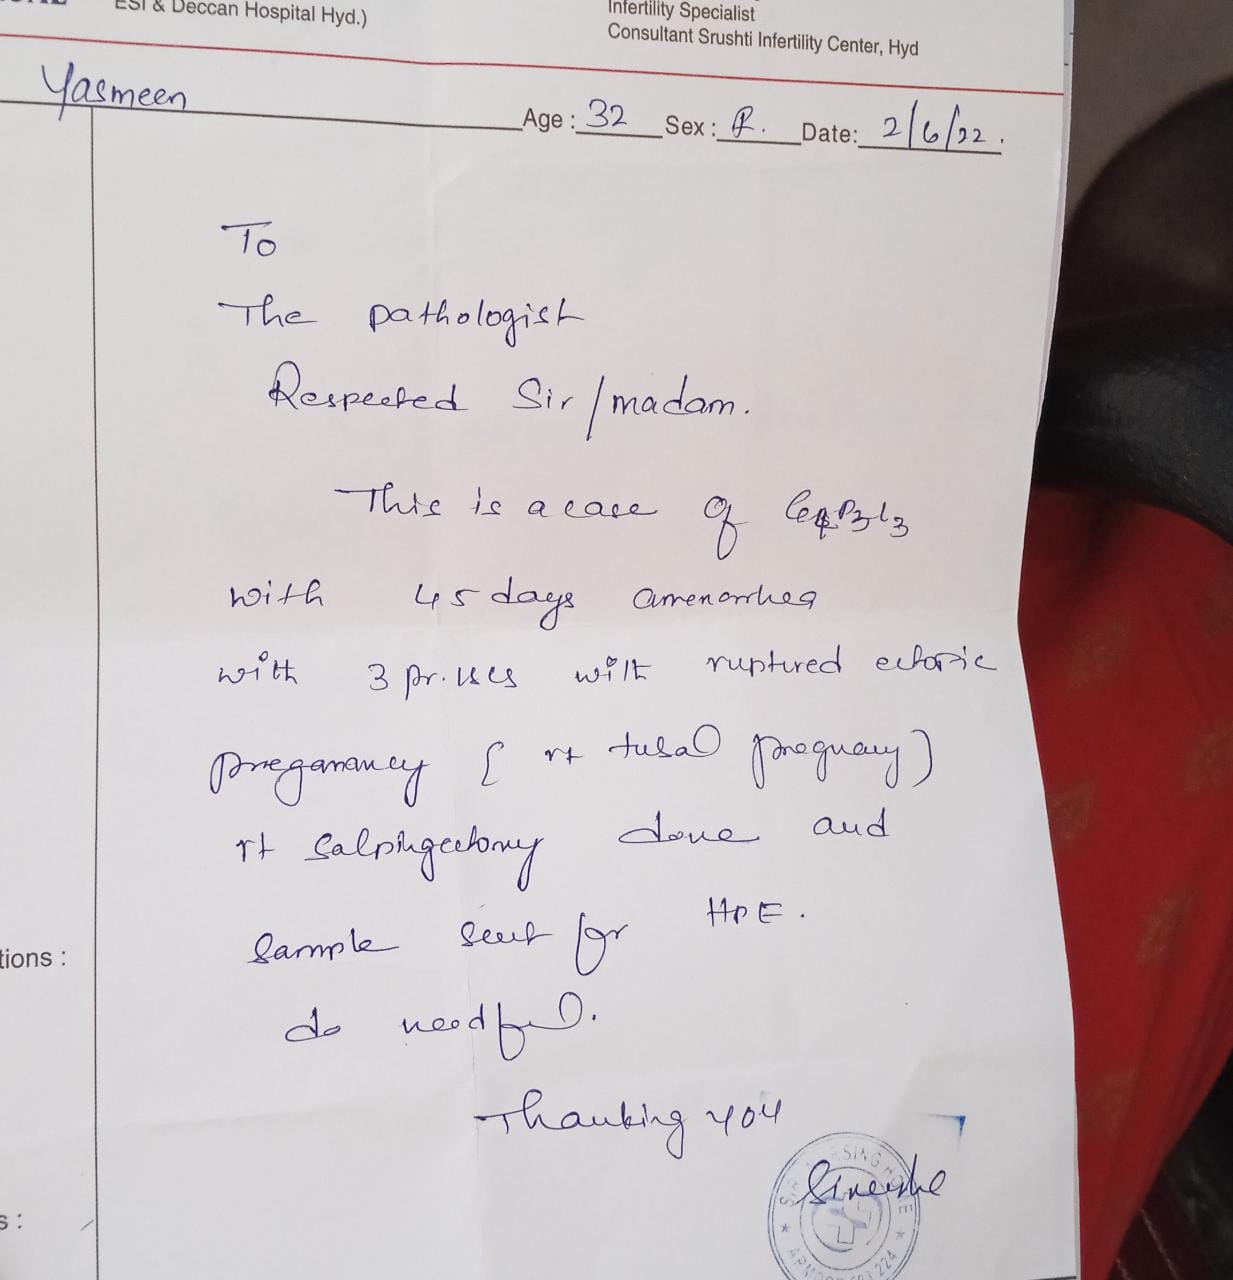 ESI & Deccan Hospital Hyd.)
Infertility Specialist
Consultant Srushti Infertility Center, Hyd
Yasmeen
Age : 32 Sex : F. Date: 2/6/22.
To
The pathologist
Respected Sir/madam.
This is a case of G4P3L3
with 45 days amenorrhea
with 3 pr. LSCS with ruptured ectopic
preganancy ( rt tubal pregnancy)
rt Salpingectomy done and
Sample sent for HPE.
do needful.
Thanking you
tions :
s :